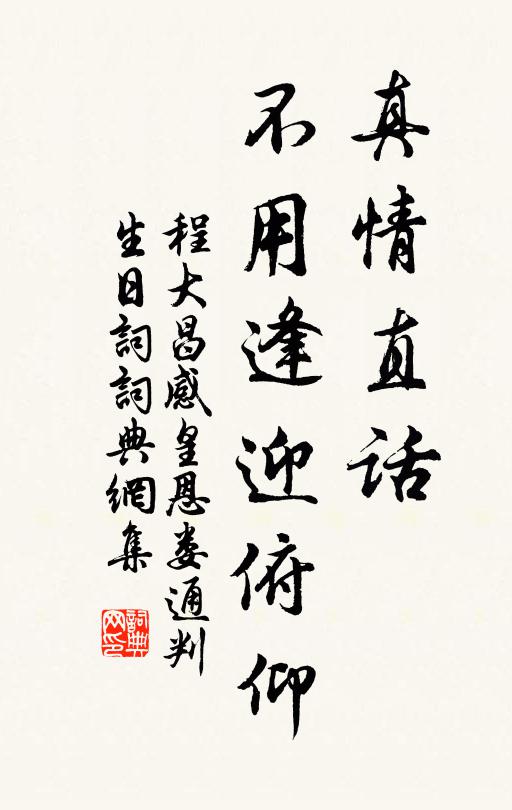 真情直话
不用逢迎俯仰
程大昌感皇恩娄通判
生日詞詞典網集
詞典网印